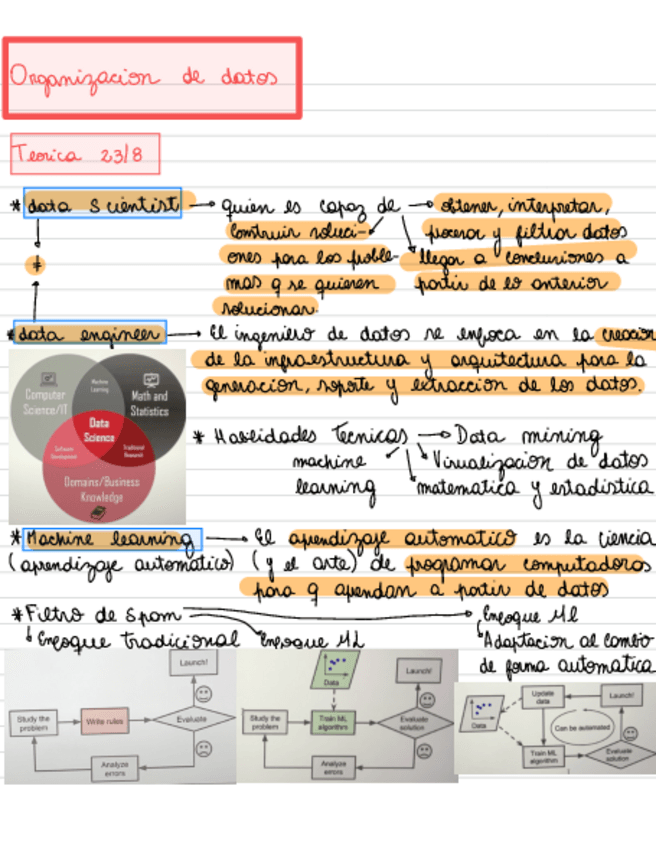 Organizacion de datos
Teorica 23/8
* data Scientist → quien es capaz de → obtener, interpretar,
construir soluci- procesar y filtrar datos
ones para los proble- llegar a conclusiones a
mas q se quieren partir de lo anterior
solucionar.
*
* data engineer → El ingeniero de datos se enfoca en la creacion
de la infraestructura y arquitectura para la
generacion, soporte y extraccion de los datos.
Computer Science/IT
Machine Learning
Math and Statistics
Data Science
Software Development
Traditional Research
Domains/Business Knowledge
* Habilidades Tecnicas → Data mining
machine Visualizacion de datos
learning matematica y estadistica
* Machine learning → El aprendizaje automatico es la ciencia
(aprendizaje automatico) (y el arte) de programar computadoras
para q aprendan a partir de datos
* Filtro de Spam → Enfoque Ml
Enfoque tradicional Enfoque ML Adaptacion al cambio
de forma automatica
Launch!
Study the problem
Write rules
Evaluate
Analyze errors
Data
Launch!
Study the problem
Train ML algorithm
Evaluate solution
Analyze errors
Update data
Launch!
Data
Can be automated
Train ML algorithm
Evaluate solution